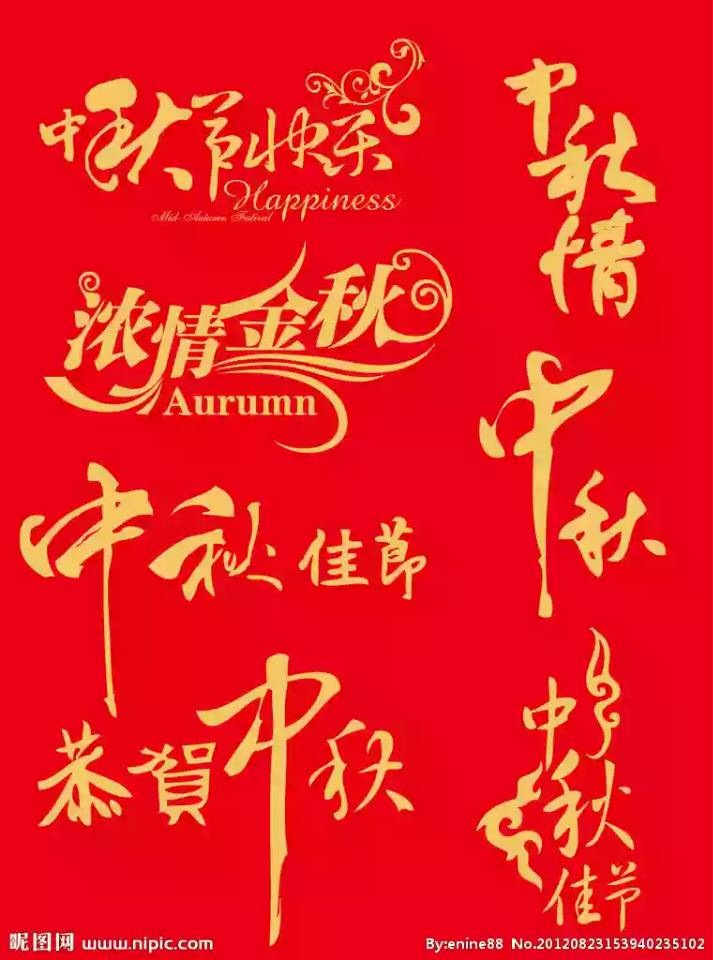 中秋节快乐
Happiness
Mid-Autumn Fativel
浓情金秋
Aurumn
中秋佳節
恭賀中秋
中秋情
中秋
中秋
佳节
昵图网 www.nipic.com
By:enine88 No.20120823153940235102